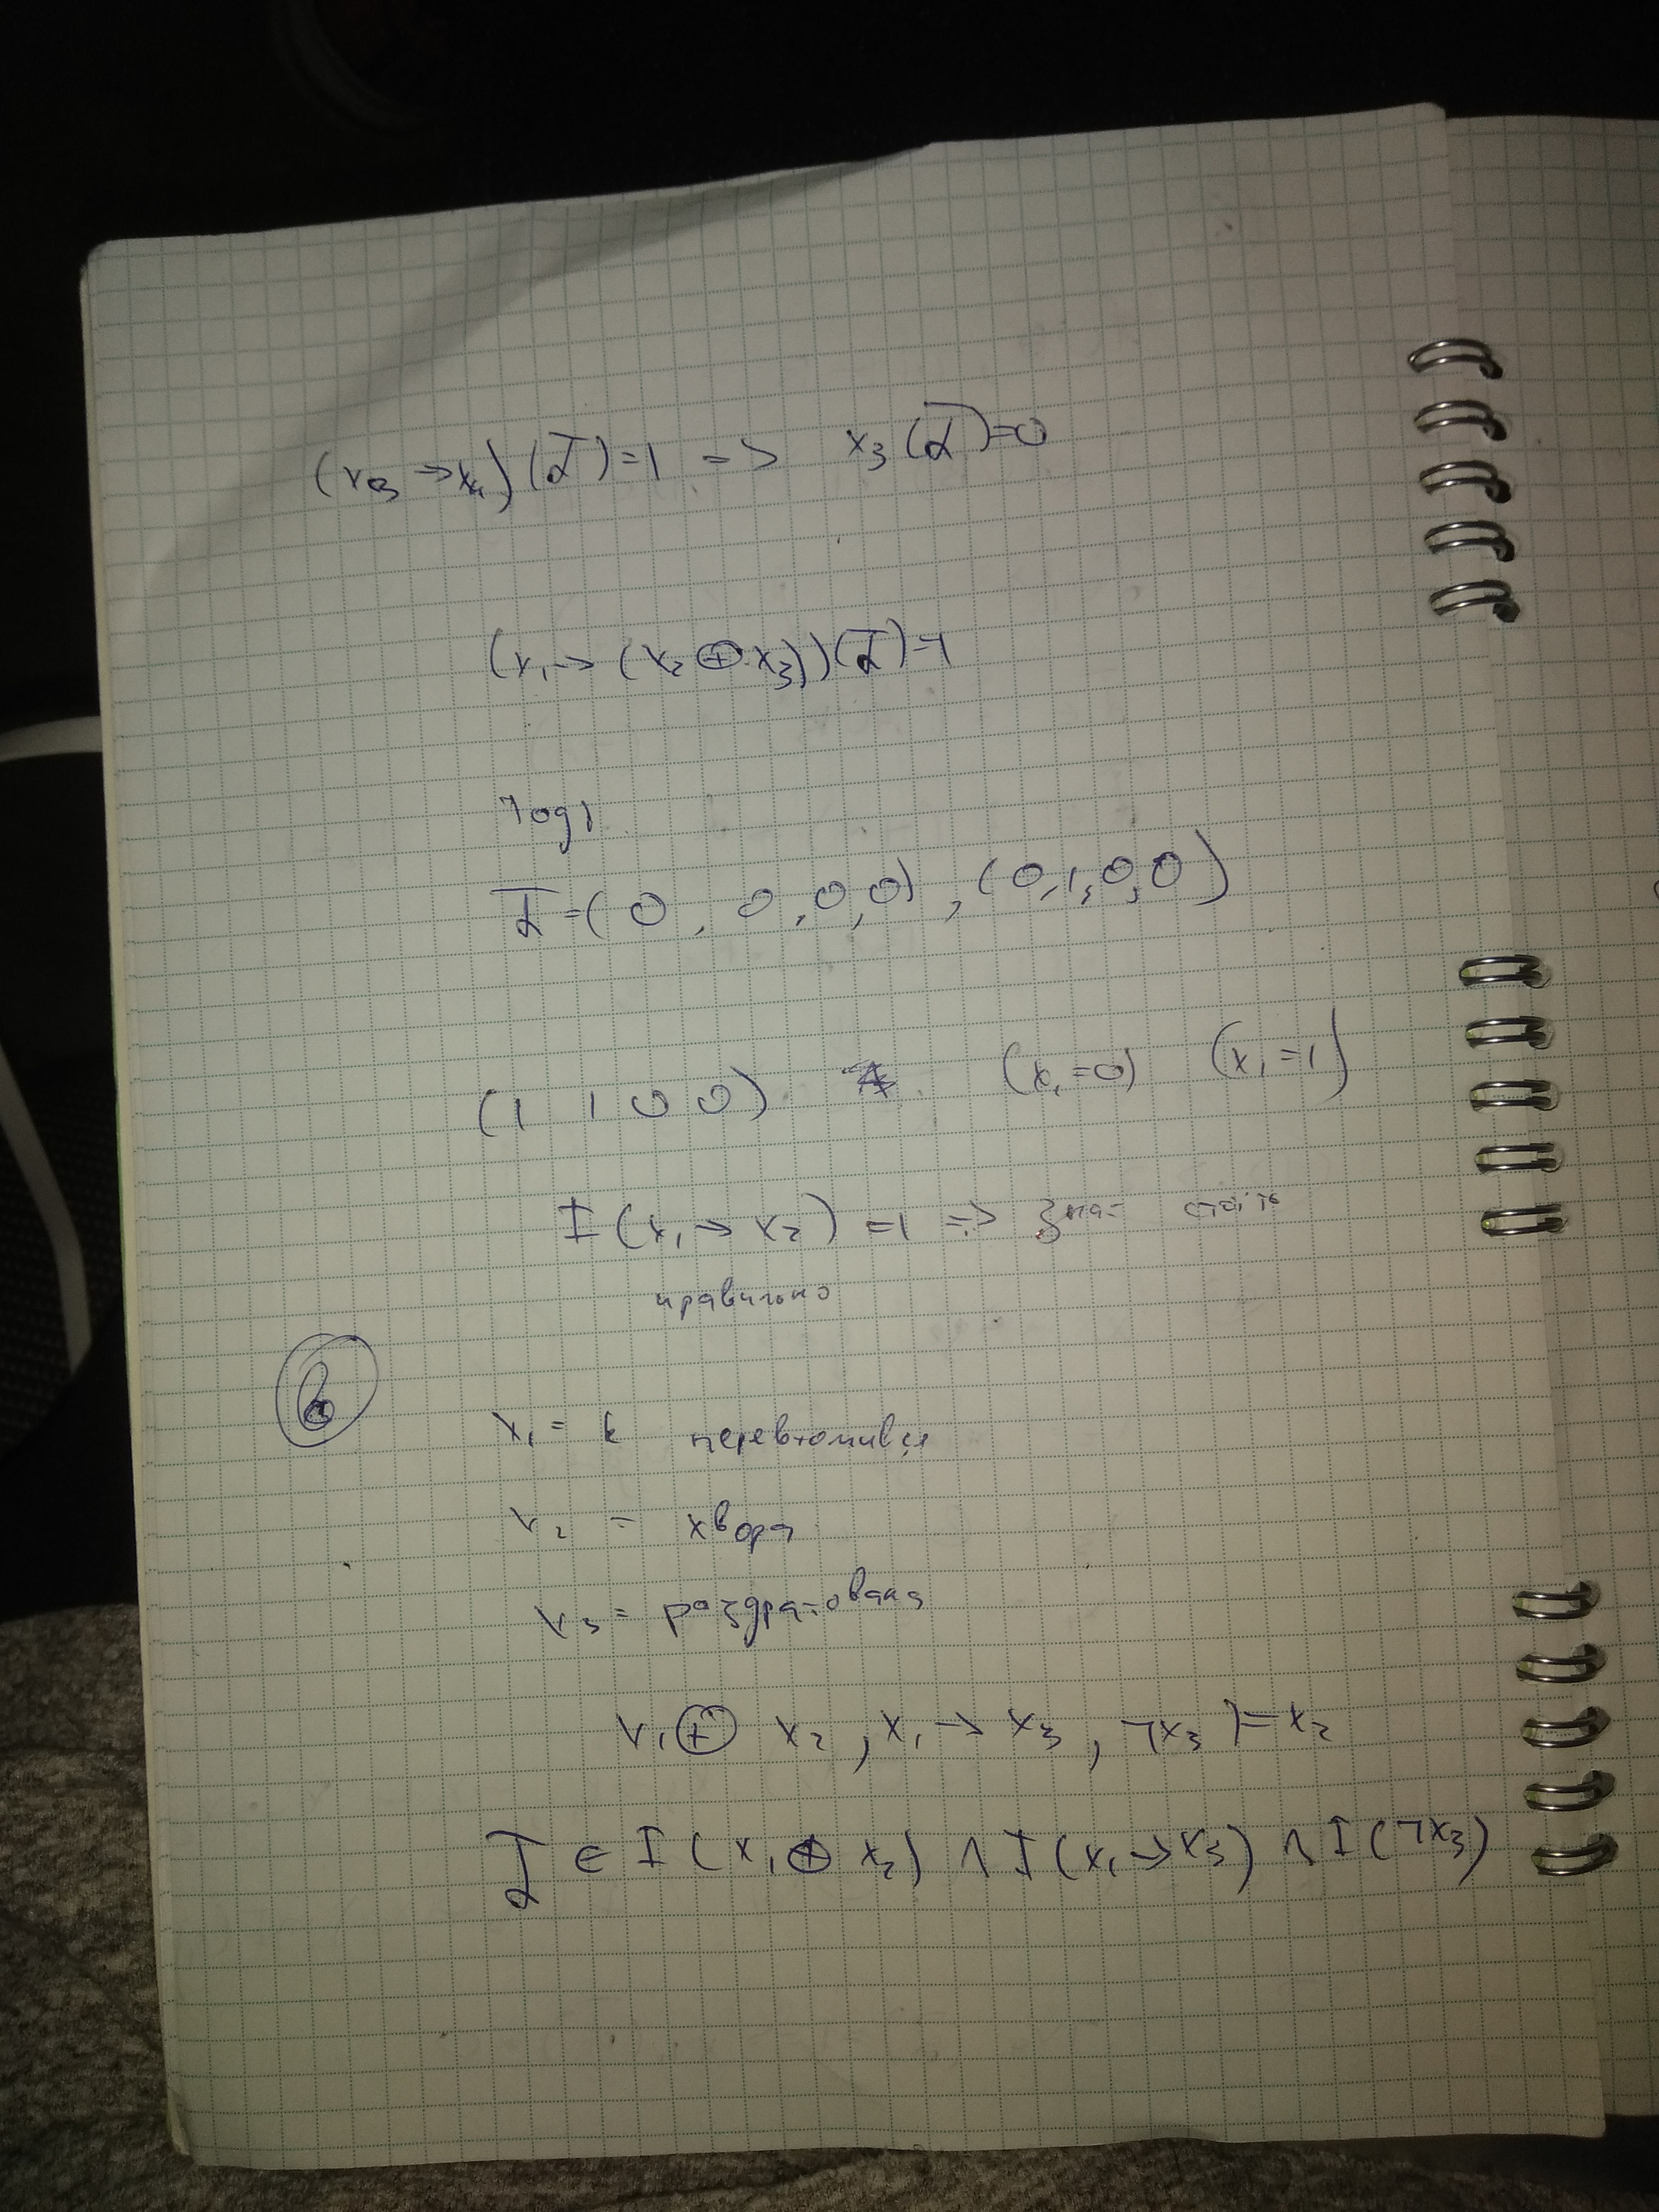 (x₃ → x₄)(α̅)=1 => x₃(α̅)=0
(x₁ → (x₂ ⊕ x₃))(α̅)=1
Тоді
α̅=(0, 0,0,0), (0,1,0,0)
(1 1 0 0) (x₁=0) (x₁=1)
I(x₁→x₂)=1 =>
правильно
6
x₁ = є перевтомився
x₂ = хвора
x₃ = роздратована
x₁ ⊕ x₂, x₁ → x₃, ¬x₃ ⊨ x₂
α̅ ∈ I(x₁ ⊕ x₂) ∧ I(x₁→x₃) ∧ I(¬x₃)